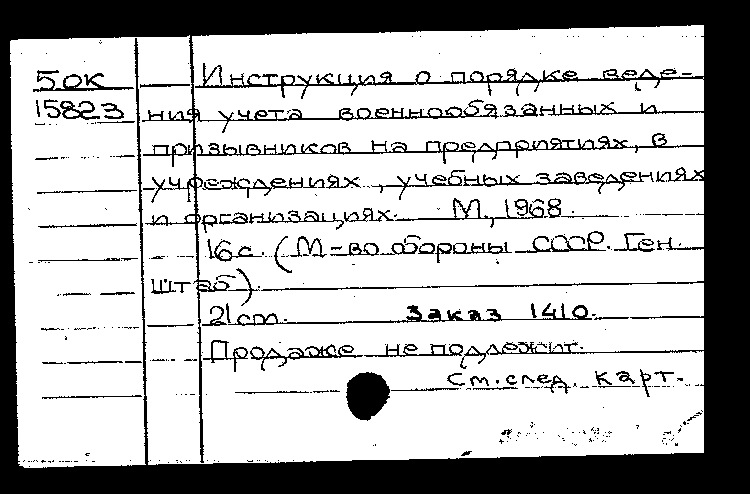 5ок Инструкция о порядке веде-
15823 ния учета военнообязанных и
призывников на предприятиях, в
учреждениях, учебных заведениях
и организациях. М., 1968.
16 с. (М-во обороны СССР. Ген.
штаб).
21 cm. Заказ 1410.
Продаже не подлежит.
См. след. карт.